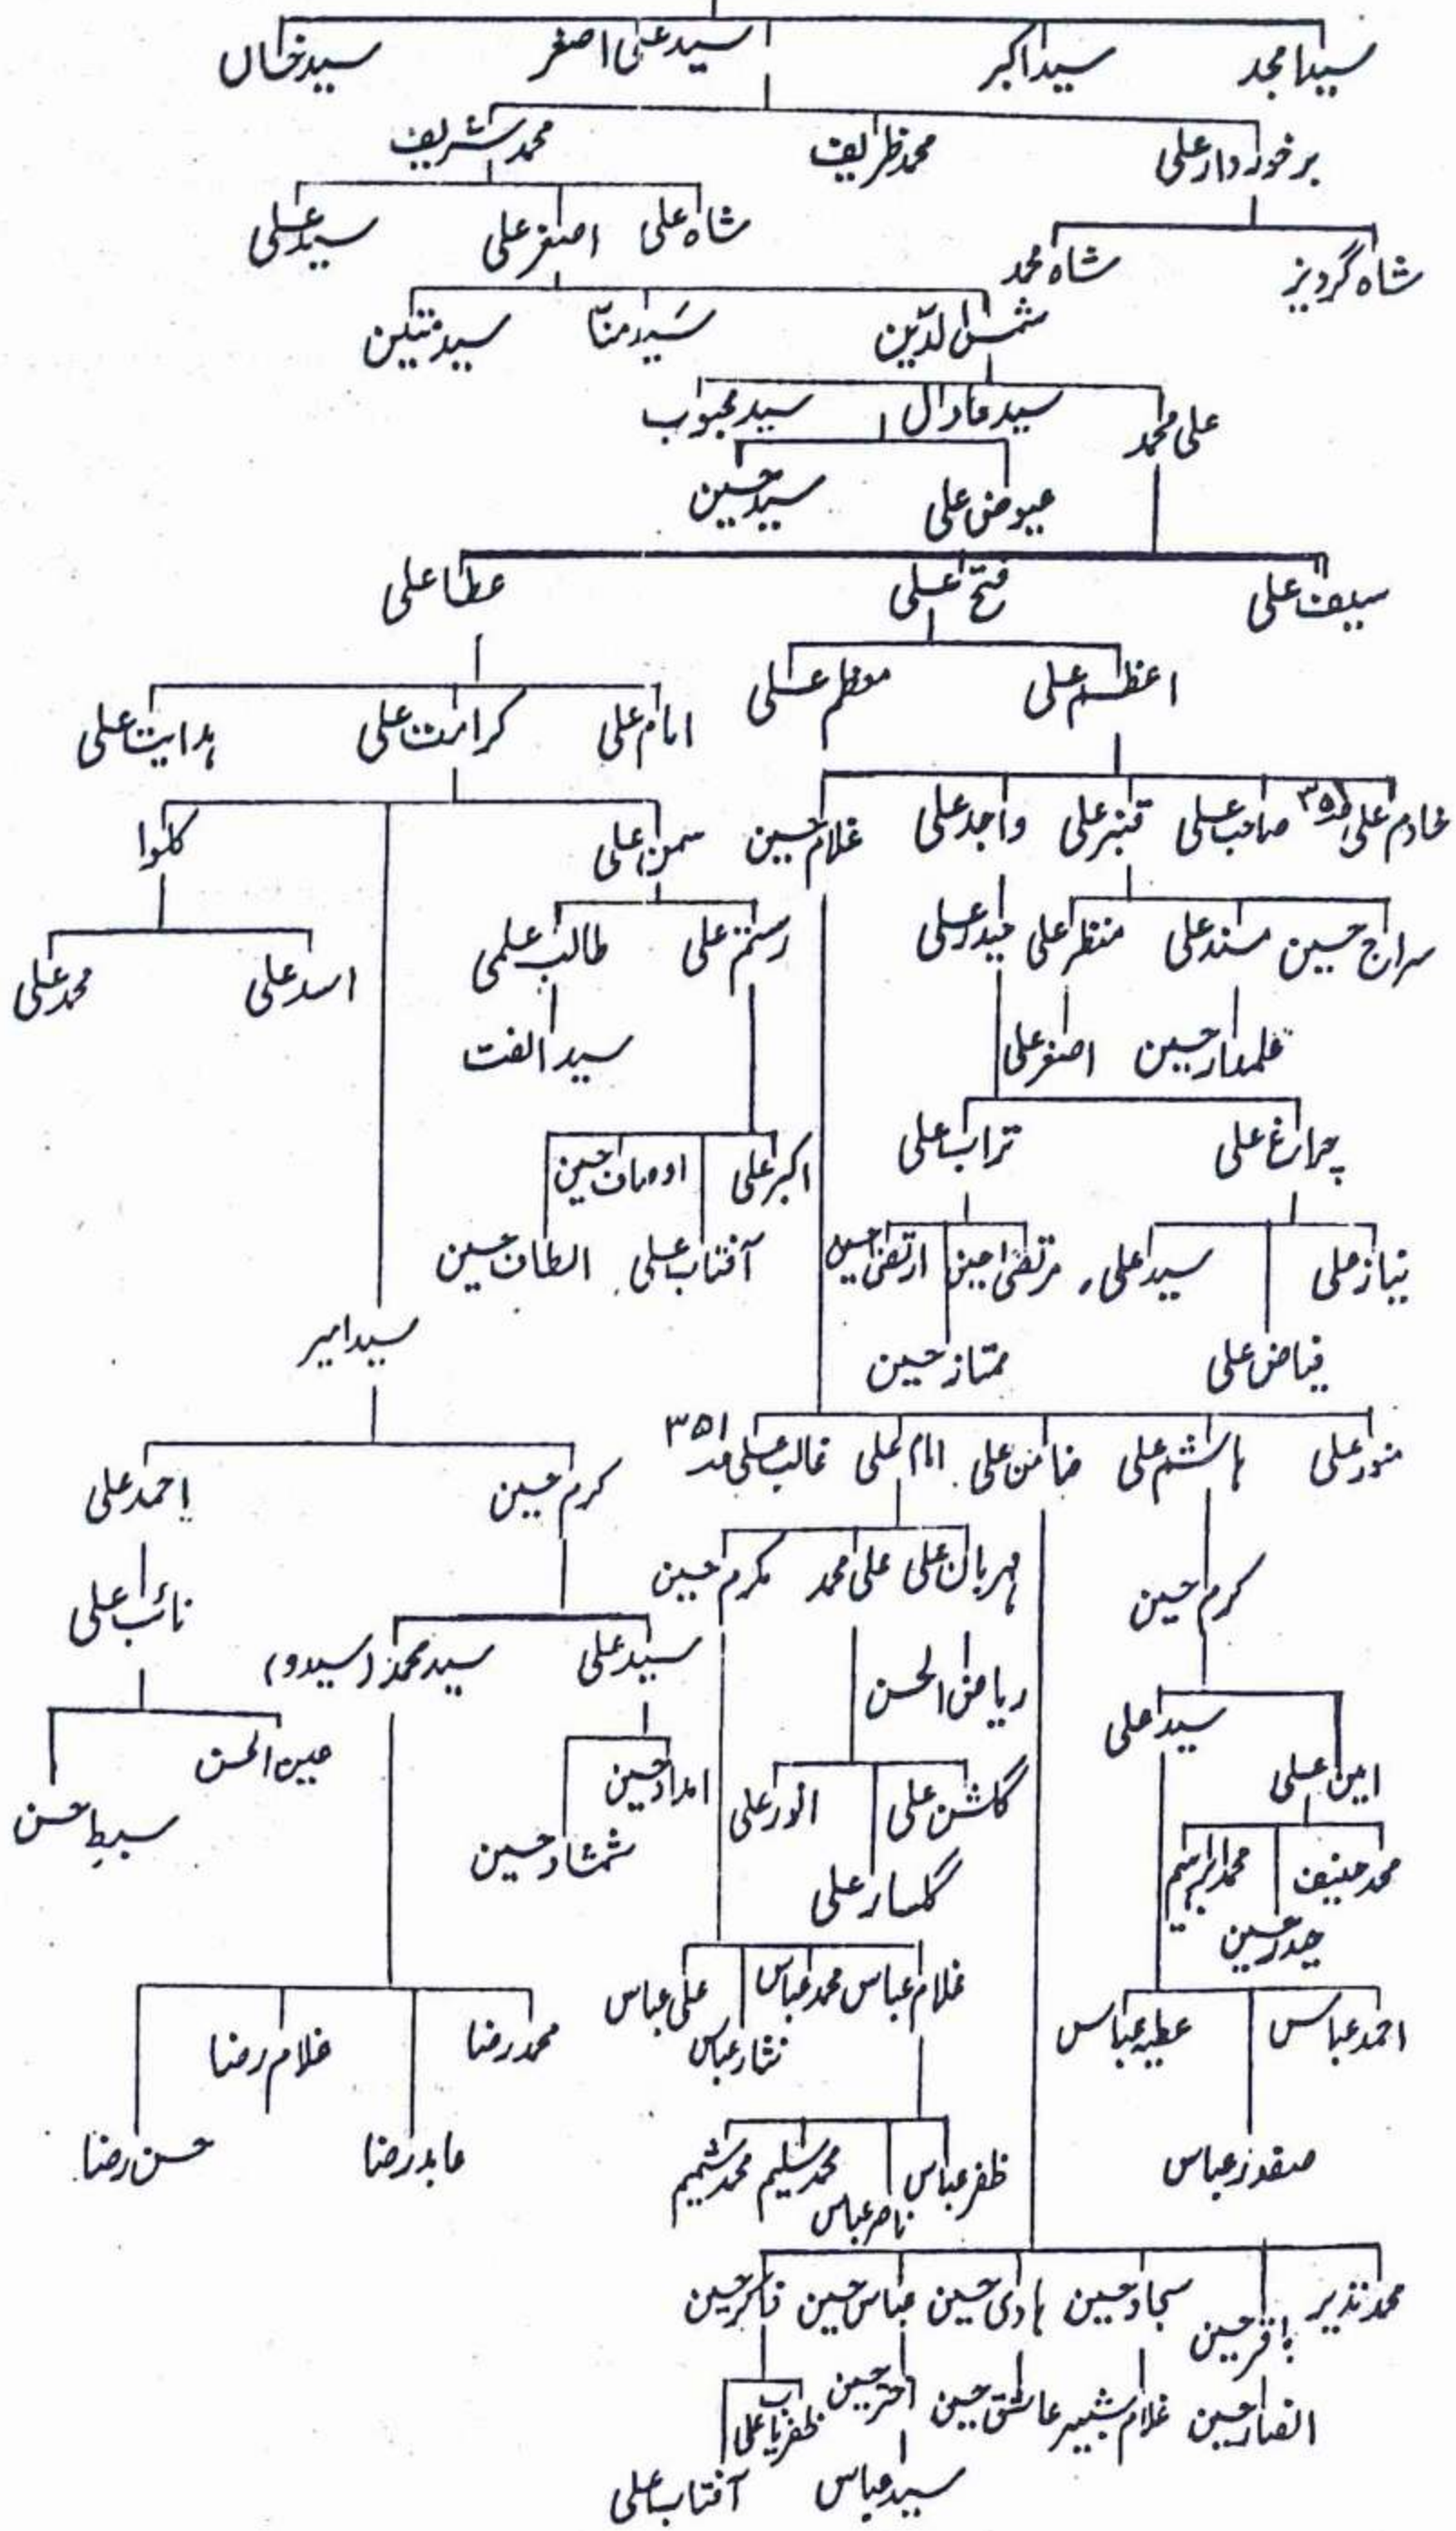 سید امجد سید اکبر سید علی اصغر سید خاں
برخوردار علی محمد ظریف محمد شریف
شاہ گردیز شاہ محمد شاہ علی اصغر علی سید علی
شمس الدین سید منّا سید متین
علی محمد سید عادل سید محبوب
عیوض علی سید حسین
سیف علی فتح علی عطا علی
اعظم علی معظم علی
امام علی کرامت علی ہدایت علی
خادم علی ۳۵۱ صاحب علی قنبر علی واجد علی غلام حسین سمن علی کلوا
سراج حسین مسند علی منظر علی حیدر علی رستم علی طالب علی اسد علی محمد علی
علمدار حسین اصغر علی سید الفت
چراغ علی تراب علی اکبر علی اوصاف حسین
نیاز علی سید علی مرتضیٰ حسین ارتضیٰ حسین آفتاب علی الطاف حسین
فیاض علی ممتاز حسین سید امیر
منور علی ہاشم علی ضامن علی امام علی غالب علی صد ۳۵۱ کرم حسین احمد علی
کرم حسین مہربان علی علی محمد مکرم حسین نائب علی
ریاض الحسن سید علی سید محمد (سیدو)
سید علی امین علی گلشن علی انور علی امداد حسین شمشاد حسین سبط حسن
محمد حنیف محمد ابراہیم گلسار علی
حیدر حسین
احمد عباس عطیہ عباس غلام عباس محمد عباس علی عباس محمد رضا غلام رضا
نثار عباس
صفدر عباس ظفر عباس محمد سلیم محمد شمیم عابد رضا حسن رضا
ناصر عباس
محمد نذیر باقر حسین سجاد حسین ہادی حسین عباس حسین ذاکر حسین
انصار حسین غلام شبیر عاشق حسین اختر حسین ظفریاب علی
سید عباس آفتاب علی